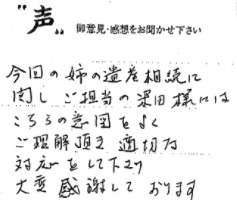 "声" 御意見・感想をお聞かせ下さい
今回の姉の遺産相続に
関し ご担当の深田様には
こちらの意図をよく
ご理解頂き 適切な
対応をして下さり
大変 感謝して おります